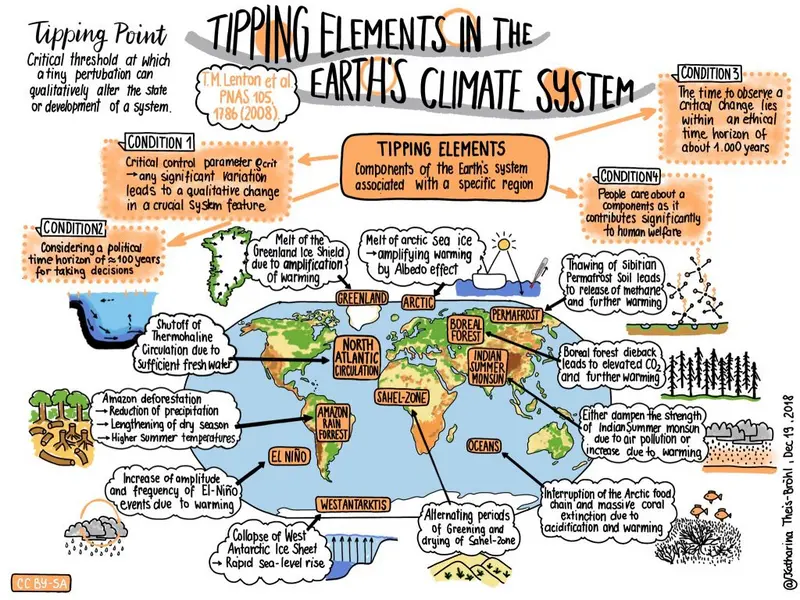 Tipping Point
Critical threshold at which
a tiny pertubation can
qualitatively alter the state
or development of a system.
TIPPING ELEMENTS IN THE
EARTH'S CLIMATE SYSTEM
T.M. Lenton et al.
PNAS 105,
1786 (2008).
CONDITION 3
The time to observe a
critical change lies
within an ethical
time horizon of
about 1.000 years
CONDITION 1
Critical control parameter ρcrit
→ any significant variation
leads to a qualitative change
in a crucial system feature
TIPPING ELEMENTS
Components of the Earth's system
associated with a specific region
CONDITION4
People care about a
components as it
contributes significantly
to human welfare
CONDITION2
Considering a political
time horizon of ≈ 100 years
for taking decisions
Melt of the
Greenland Ice Shield
due to amplification
of warming
Melt of arctic Sea ice
→ amplifying warming
by Albedo effect
Thawing of Sibirian
Permafrost Soil leads
to release of methane
and further warming
GREENLAND
ARCTIC
PERMAFROST
BOREAL
FOREST
Shutoff of
Thermohaline
Circulation due to
sufficient fresh water
NORTH
ATLANTIC
CIRCULATION
INDIAN
SUMMER
MONSUN
Boreal forest dieback
leads to elevated CO2
and further warming
SAHEL-ZONE
Amazon deforestation
→ Reduction of precipitation
→ Lengthening of dry season
→ Higher Summer temperatures
AMAZON
RAIN
FORREST
Either dampen the strength
of Indian Summer monsun
due to air pollution or
increase due to warming
EL NIÑO
OCEANS
Increase of amplitude
and frequency of El-Niño
events due to warming
WESTANTARKTIS
Interruption of the Arctic food
chain and massive coral
extinction due to
acidification and warming
Collapse of West
Antarctic Ice Sheet
→ Rapid sea-level rise
Alternating periods
of Greening and
drying of Sahel-zone
CC BY-SA
@Katharina Theis-Bröhl, Dec 19, 2018